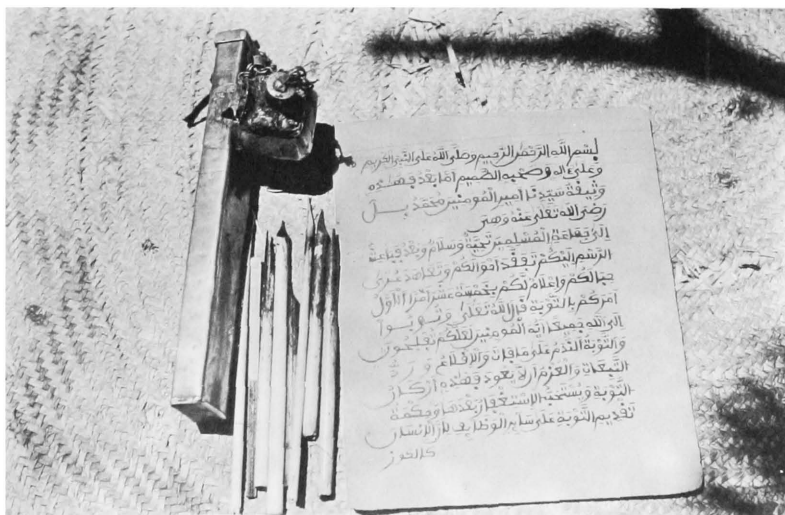 بسم الله الرحمن الرحيم وصلى الله على النبي الكريم
وعلى ءاله وصحبه الصميم اما بعد فهذه
وثيقة سيدنا امير المومنين محمد بل
رضى الله تعلى عنه وهى
الى جماعة المسلمين تحية وسلام وبعد فباعث
الرسم اليكم تفقد احوالكم وتعاهد عرى
حبالكم واعلامكم بخمسة عشر امرا الاول
امركم بالتوبة قال الله تعلى وتوبوا
الى الله جميعا ايه المومنين لعلكم تفلحون
والتوبة الندم على ما فات والاقلاع ورد
التبعات والعزم ان لا يعود فهذه اركان
التوبة ويستحب الاستغفار بعدها وحكمة
تقديم التوبة على ساير الوظايف لان الانسان